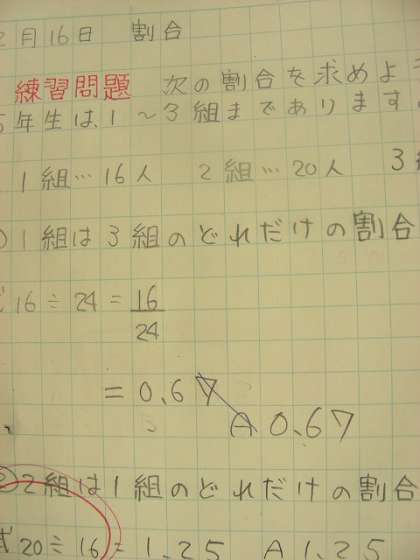 2月16日 割合
練習問題 次の割合を求めよ
5年生は、1〜3組まであります
1組…16人 2組…20人 3組
①1組は3組のどれだけの割合
式16÷24=16/24
=0.67
A 0.67
②2組は1組のどれだけの割合
式20÷16=1.25 A1.25